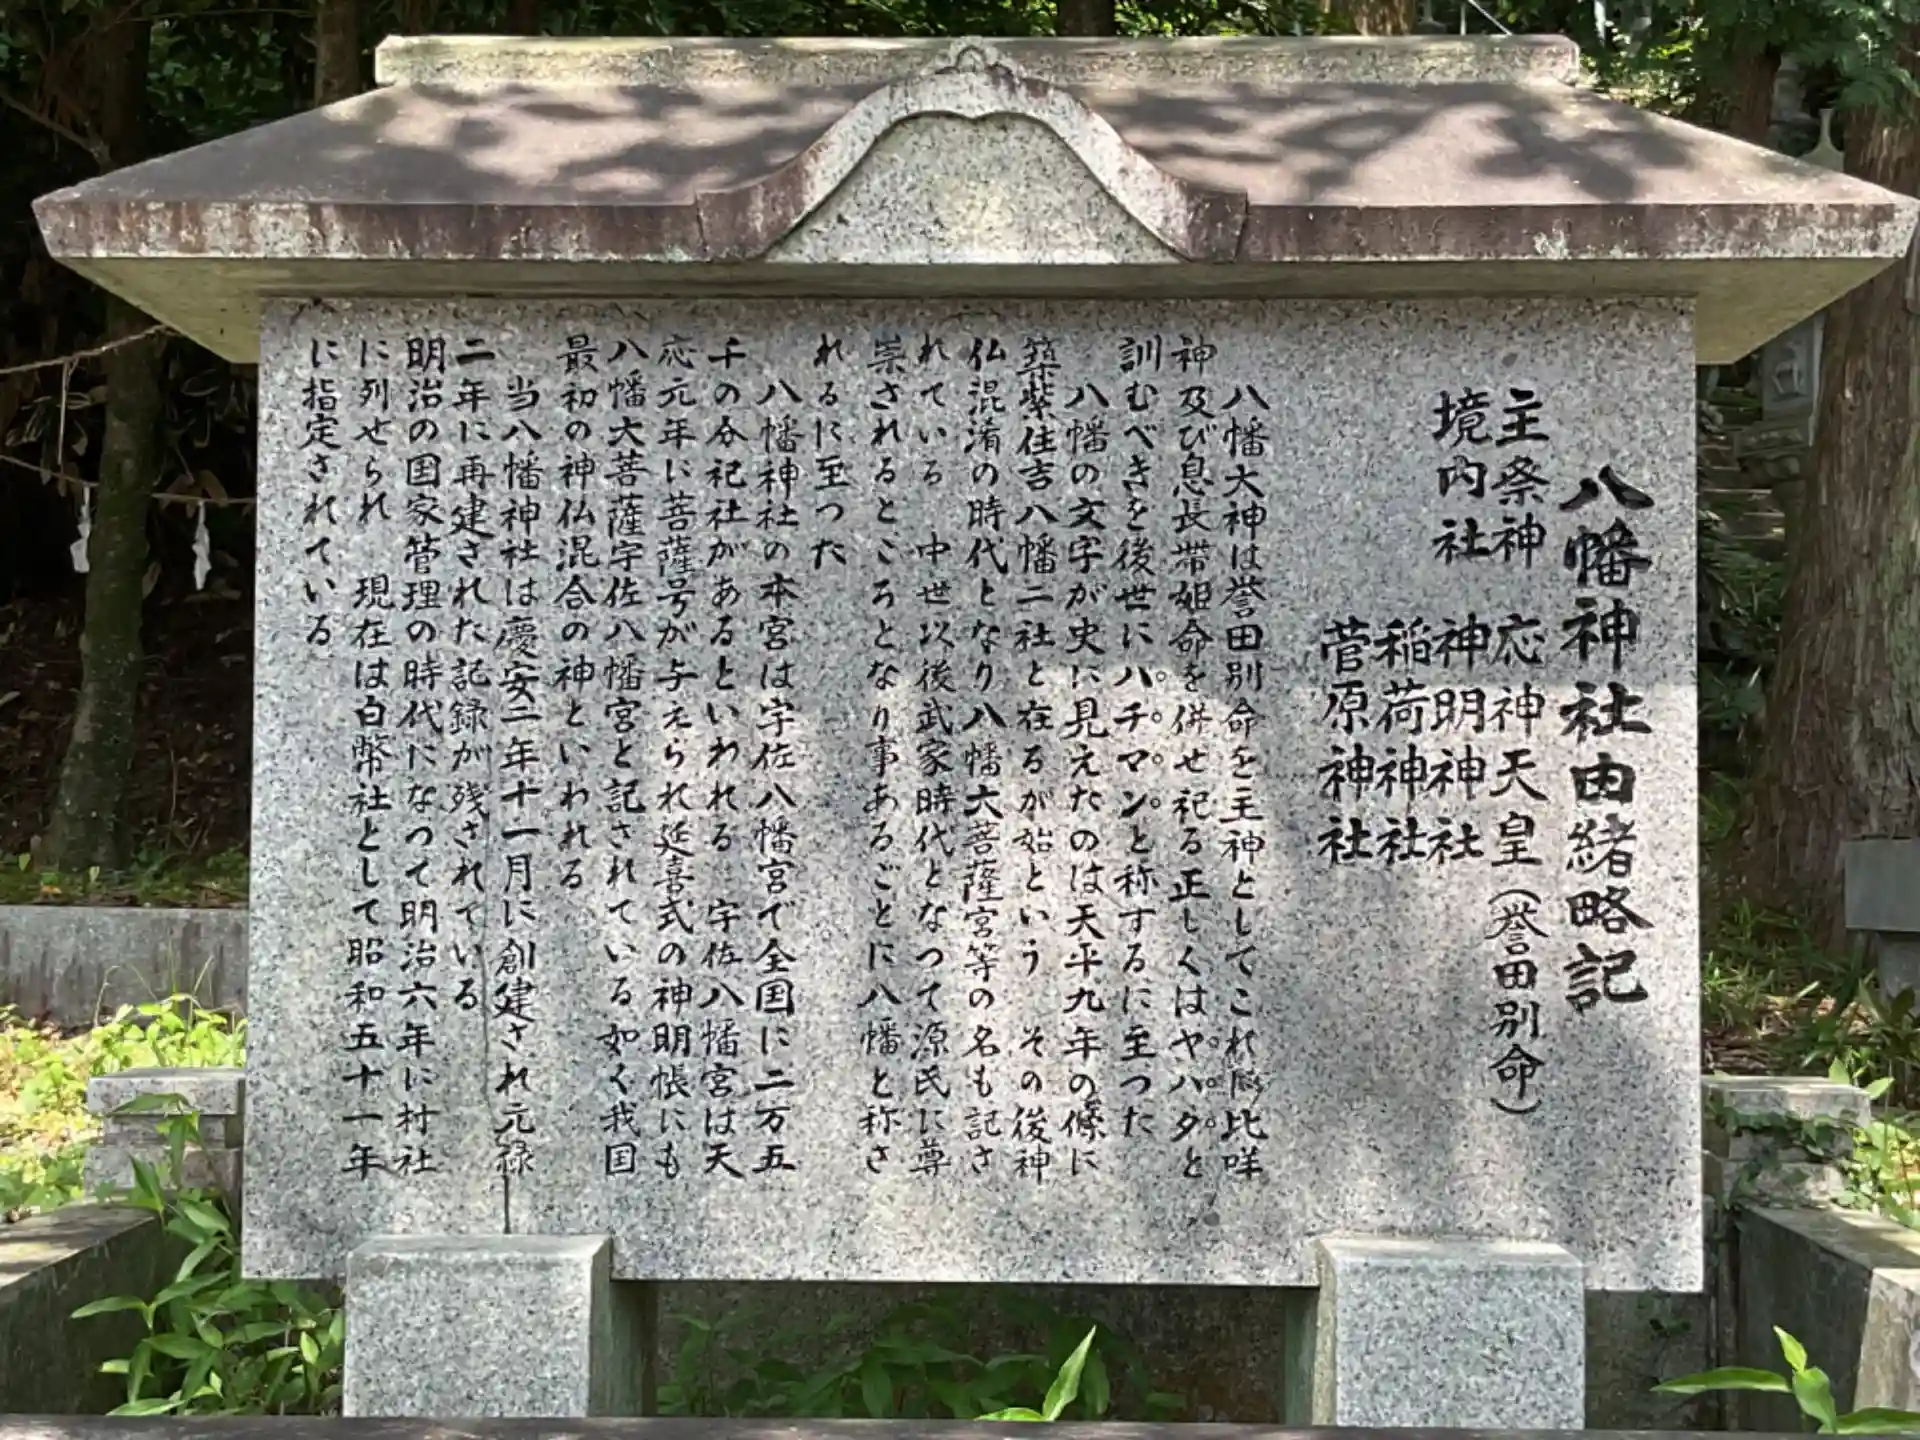 八幡神社由緒略記
主祭神 応神天皇(誉田別命)
境内社 神明神社
稲荷神社
菅原神社
八幡大神は誉田別命を主神としてこれに比咩
神及び息長帯姫命を併せ祀る正しくはヤハタと
訓むべきを後世にハチマンと称するに至つた
八幡の文字が史に見えたのは天平九年の條に
築紫住吉八幡二社と在るが始という その後神
仏混淆の時代となり八幡大菩薩宮等の名も記さ
れている 中世以後武家時代となつて源氏に尊
崇されるところとなり事あるごとに八幡と称さ
れるに至つた
八幡神社の本宮は宇佐八幡宮で全国に二万五
千の分祀社があるといわれる 宇佐八幡宮は天
応元年に菩薩号が与えられ延喜式の神明帳にも
八幡大菩薩宇佐八幡宮と記されている如く我国
最初の神仏混合の神といわれる
当八幡神社は慶安二年十一月に創建され元禄
二年に再建された記録が残されている
明治の国家管理の時代になつて明治六年に村社
に列せられ 現在は白幣社として昭和五十一年
に指定されている